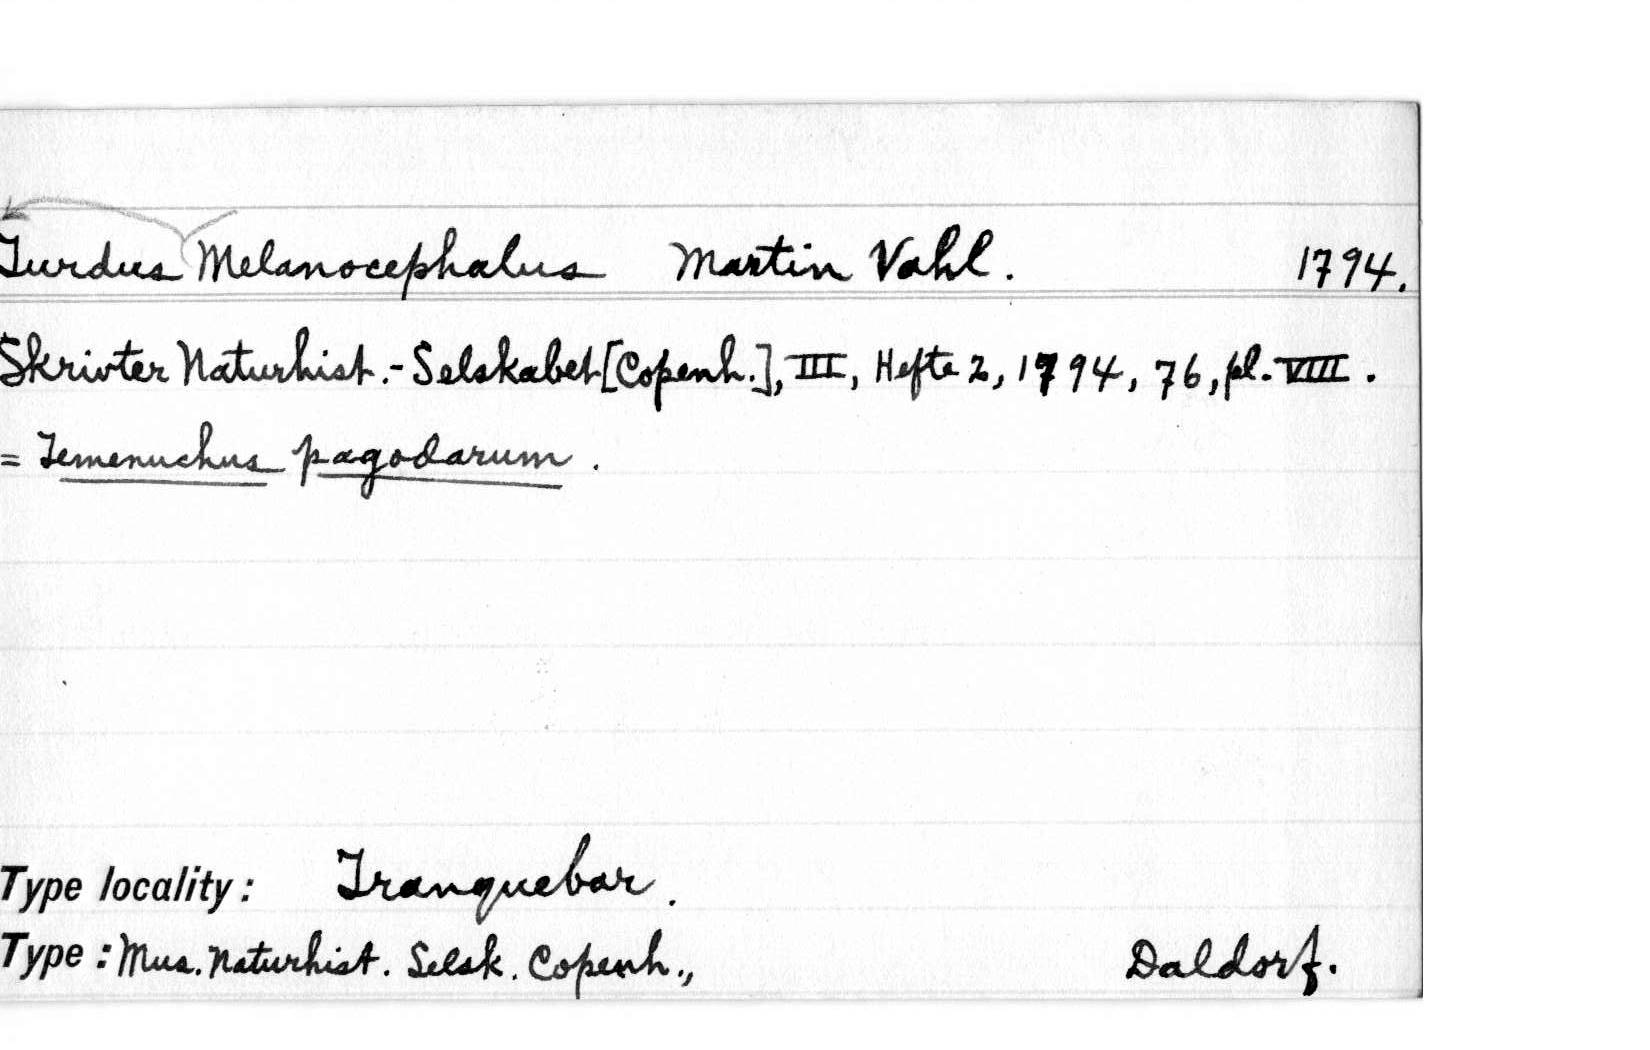 Turdus Melanocephalus Martin Vahl. 1794.
Skrivter Naturhist.-Selskabet [Copenh.], III, Hefte 2, 1794, 76, pl. VIII.
= Temenuchus pagodarum.
Type locality: Tranquebar.
Type: Mus. Naturhist. Selsk. Copenh., Daldorf.